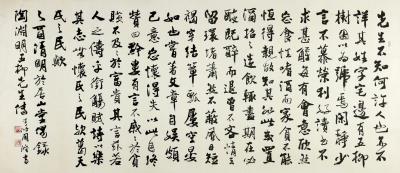 先生不知何許人也亦不
詳其姓字宅邊有五柳
樹因以為號焉閑靜少
言不慕榮利好讀書不
求甚解每有會意欣然
忘食性嗜酒而家貧不能
恒得親故知其如此或置
酒招之造飲輒盡期在必
醉既醉而退曾不吝情去
留環堵蕭然不蔽風日短
褐穿結簞瓢屢空晏
如也嘗著文章自娛頗
己意忘懷得失以此自終
贊曰黔婁有言不戚戚於貧
賤不及於富貴其言茲若
人之儔乎銜觴賦詩以樂
其志無懷氏之民歟葛天
氏之民歟
乙酉清明於居山堂偶錄
陶淵明五柳先生傳